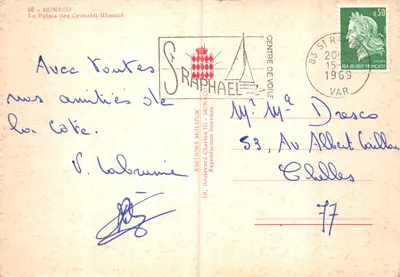 68 - MONACO
Le Palais des Grimaldi Illuminé
Avec toutes
nos amitiés de
la Côte.
V. Labrunie
EDITIONS MOLIPOR - MONACO
19, Boulevard Charles III
Reproduction Interdite
ST RAPHAEL
CENTRE DE VOILE
83 ST RAPHAEL
1969
VAR
0,30
REPUBLIQUE FRANÇAISE
Mr Me Dresco
53, Av Albert Caillou
Chelles
77